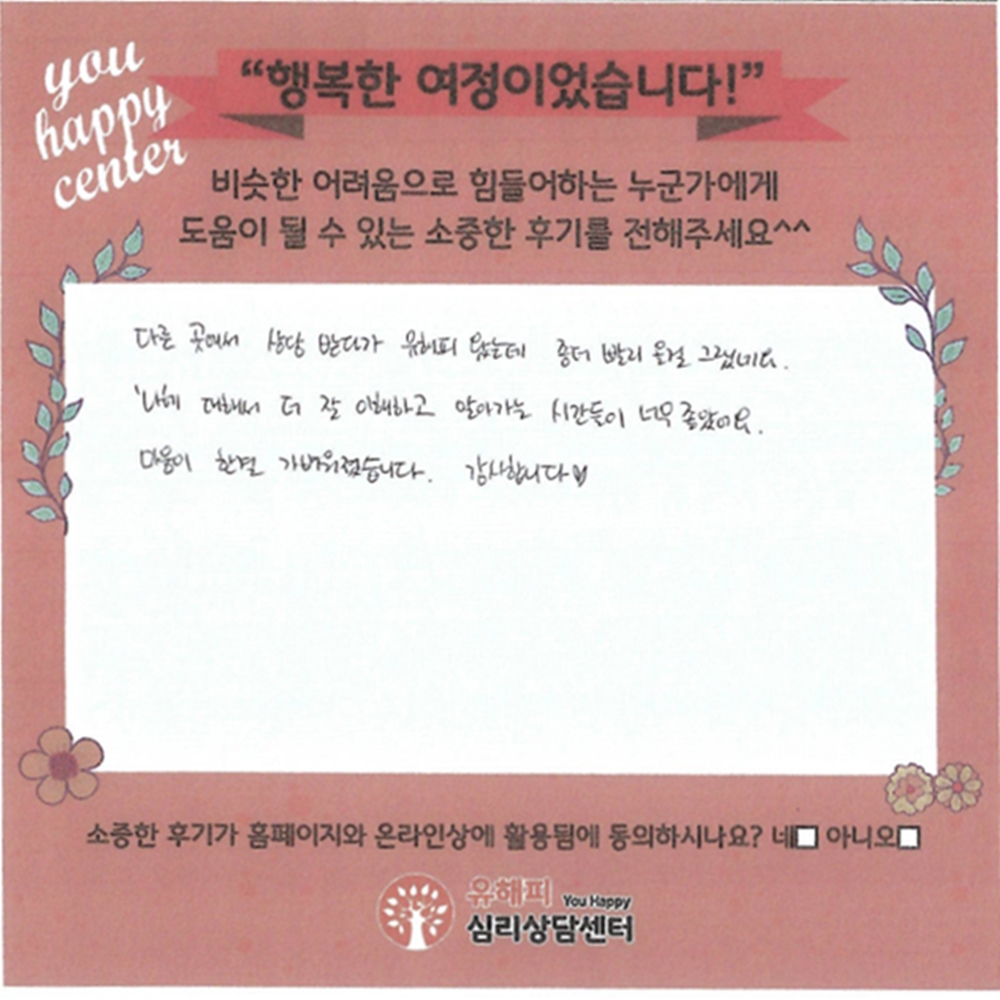 you
happy
center
“행복한 여정이었습니다!”
비슷한 어려움으로 힘들어하는 누군가에게
도움이 될 수 있는 소중한 후기를 전해주세요^^
다른 곳에서 상담 받다가 유해피 왔는데 좀더 빨리 올걸 그랬네요.
'나'에 대해서 더 잘 이해하고 알아가는 시간들이 너무 좋았어요.
마음이 한결 가벼워졌습니다. 감사합니다♥
소중한 후기가 홈페이지와 온라인상에 활용됨에 동의하시나요? 네□ 아니오□
유해피 You Happy
심리상담센터